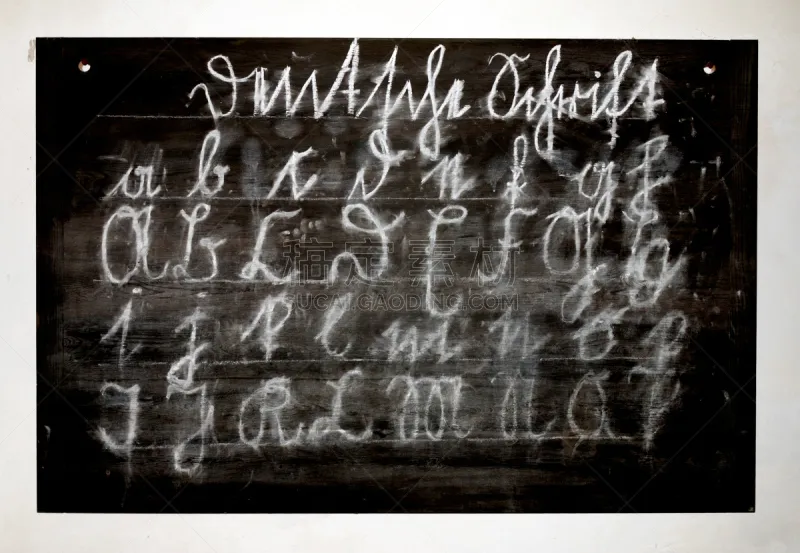 Deutsche Schrift
a b c d e f g h
A B C D E F G H
i j k l m n o p
I J K L M N O P
搞定素材
SUCAI.GAODING.COM